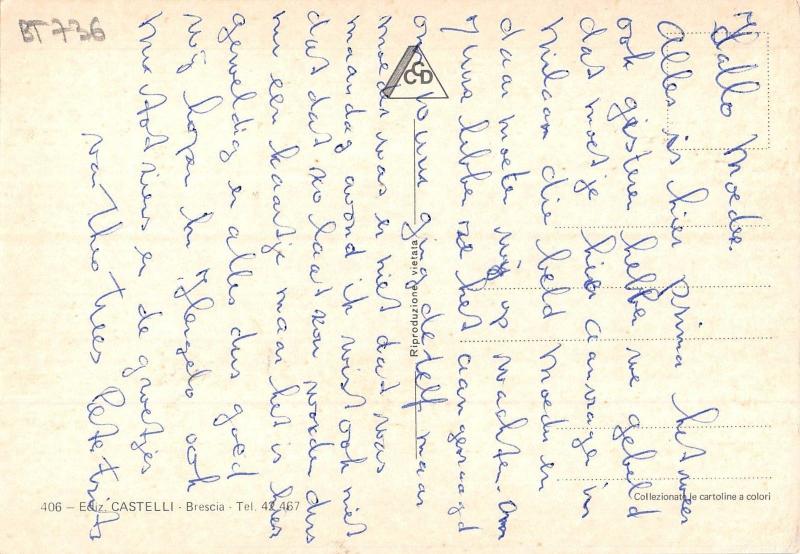 Hallo Moeder.
Alles is hier Prima het weer
ook gisteren hebben we gebeld
dat moet je hier aanvragen in
Milaan die beld Moeder en
daar moeten wij op wachten. om
7 uur hebben we het aangevraagd
om uur ging de telf maar
moeder was er niet dat was
maandag avond ik wist ook niet
dat dat zo laat zou worden dus
nu een kaartje maar het is hier
geweldig en alles dus goed
wij hopen in ook
tot ziens en de groetjes
van Theo Trees
BT 736
CCD
Riproduzione vietata
406 – Ediz. CASTELLI - Brescia - Tel. 42.467
Collezionate le cartoline a colori